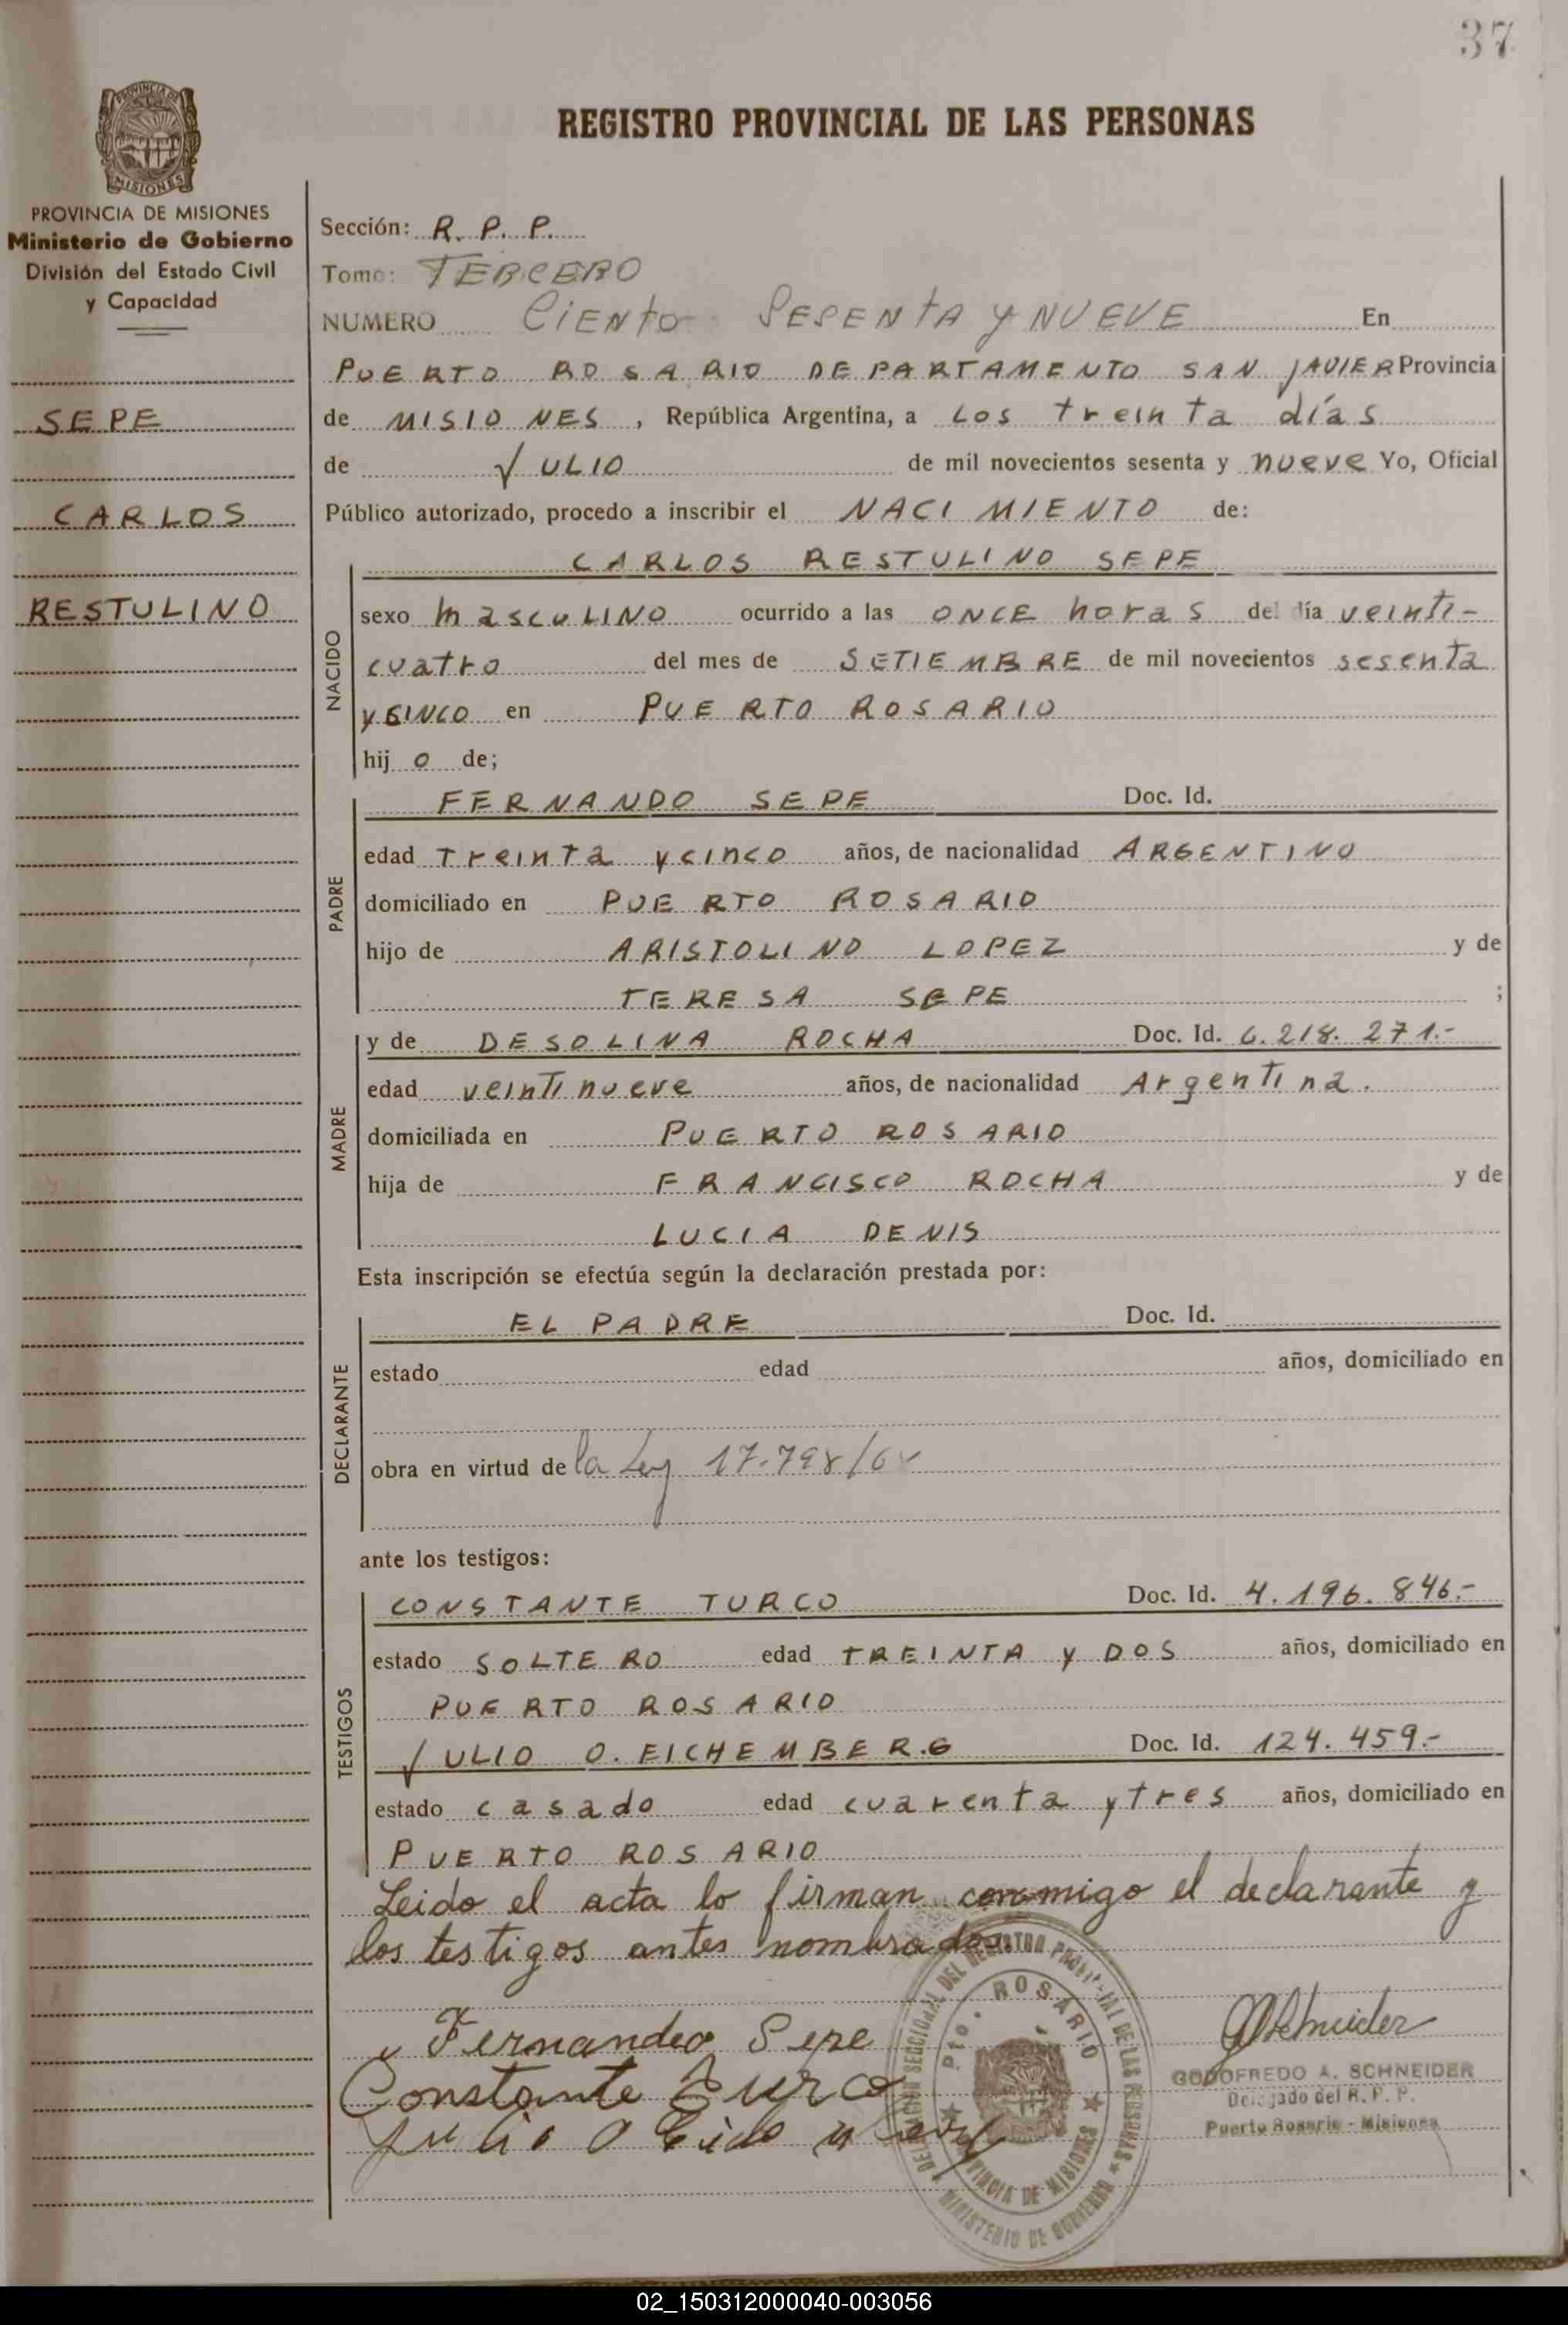 37
REGISTRO PROVINCIAL DE LAS PERSONAS
PROVINCIA DE MISIONES
MISIONES
PROVINCIA DE MISIONES
Ministerio de Gobierno
División del Estado Civil
y Capacidad
SEPE
CARLOS
RESTULINO
Sección: R. P. P.
Tomo: TERCERO
NUMERO CiENto SESENtA y NUEVE En
PUERTO ROSARIO DEPARTAMENTO SAN JAVIER Provincia
de MISIONES, República Argentina, a Los treinta días
de JULIO de mil novecientos sesenta y nueve Yo, Oficial
Público autorizado, procedo a inscribir el NACIMIENTO de:
NACIDO
CARLOS RESTULINO SEPE
sexo masculino ocurrido a las ONCE horas del día veinti-
cuatro del mes de SETIEMBRE de mil novecientos sesenta
y CINCO en PUERTO ROSARIO
hij o de;
PADRE
FERNANDO SEPE Doc. Id.
edad treinta y cinco años, de nacionalidad ARGENTINO
domiciliado en PUERTO ROSARIO
hijo de ARISTOLINO LOPEZ y de
TERESA SEPE ;
MADRE
y de DESOLINA ROCHA Doc. Id. 6.218.271.-
edad veintinueve años, de nacionalidad Argentina.
domiciliada en PUERTO ROSARIO
hija de FRANCISCO ROCHA y de
LUCIA DENIS
Esta inscripción se efectúa según la declaración prestada por:
DECLARANTE
EL PADRE Doc. Id.
estado edad años, domiciliado en
obra en virtud de la Ley 17.798/68
ante los testigos:
TESTIGOS
CONSTANTE TURCO Doc. Id. 4.196.846.-
estado SOLTERO edad TREINTA y DOS años, domiciliado en
PUERTO ROSARIO
JULIO O. EICHEMBERG Doc. Id. 124.459.-
estado casado edad cuarenta y tres años, domiciliado en
PUERTO ROSARIO
Leido el acta lo firman conmigo el declarante y
los testigos antes nombrados.
Fernandeo Sepe
Constante Turco
Julio O
DELEGACION SECCIONAL DEL REGISTRO PROVINCIAL DE LAS PERSONAS
Pto. ROSARIO
PROVINCIA DE MISIONES
MINISTERIO DE GOBIERNO
GSchneider
GODOFREDO A. SCHNEIDER
Delegado del R. P. P.
Puerto Rosario - Misiones
02_150312000040-003056